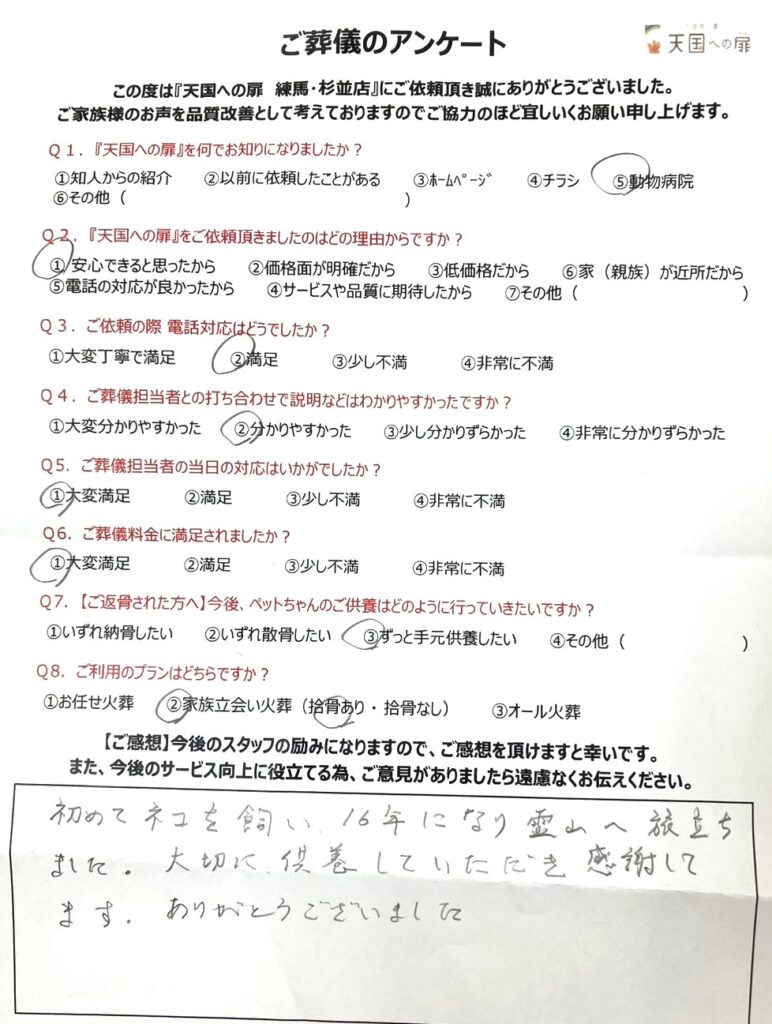 ご葬儀のアンケート
天国への扉
この度は『天国への扉 練馬・杉並店』にご依頼頂き誠にありがとうございました。
ご家族様のお声を品質改善として考えておりますのでご協力のほど宜しいくお願い申し上げます。
Q1. 『天国への扉』を何でお知りになりましたか？
①知人からの紹介 ②以前に依頼したことがある ③ﾎｰﾑﾍﾟｰｼﾞ ④チラシ ⑤動物病院
⑥その他（ ）
Q2. 『天国への扉』をご依頼頂きましたのはどの理由からですか？
① 安心できると思ったから ②価格面が明確だから ③低価格だから ⑥家（親族）が近所だから
⑤電話の対応が良かったから ④サービスや品質に期待したから ⑦その他（ ）
Q3. ご依頼の際 電話対応はどうでしたか？
①大変丁寧で満足 ②満足 ③少し不満 ④非常に不満
Q4. ご葬儀担当者との打ち合わせで説明などはわかりやすかったですか？
①大変分かりやすかった ②分かりやすかった ③少し分かりずらかった ④非常に分かりずらかった
Q5. ご葬儀担当者の当日の対応はいかがでしたか？
①大変満足 ②満足 ③少し不満 ④非常に不満
Q6. ご葬儀料金に満足されましたか？
①大変満足 ②満足 ③少し不満 ④非常に不満
Q7. 【ご返骨された方へ】今後、ペットちゃんのご供養はどのように行っていきたいですか？
①いずれ納骨したい ②いずれ散骨したい ③ずっと手元供養したい ④その他（ ）
Q8. ご利用のプランはどちらですか？
①お任せ火葬 ②家族立会い火葬（拾骨あり・拾骨なし） ③オール火葬
【ご感想】今後のスタッフの励みになりますので、ご感想を頂けますと幸いです。
また、今後のサービス向上に役立てる為、ご意見がありましたら遠慮なくお伝えください。
初めてネコを飼い、16年になり霊山へ旅立ち
ました。大切に、供養していただき感謝して
ます。ありがとうございました